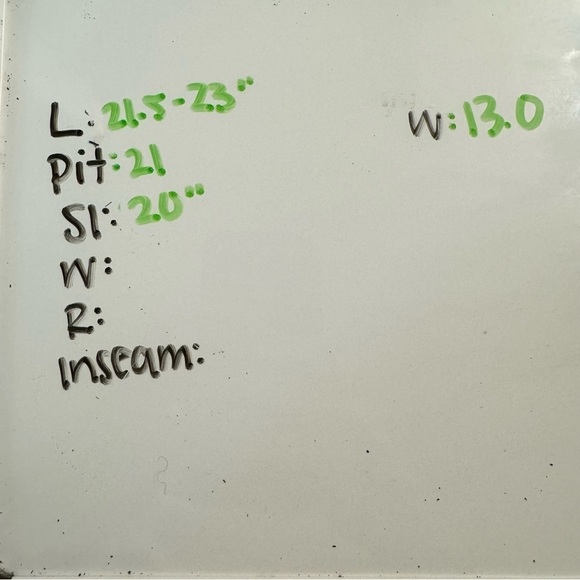 L: 21.5-23"
Pit: 21
Sl: 20"
W:
R:
Inseam:
W: 13.0